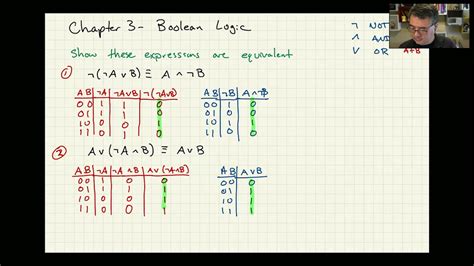 Chapter 3 - Boolean Logic
¬ NOT
∧ AND
∨ OR A+B
Show these expressions are equivalent
① ¬(¬A∨B) ≡ A ∧ ¬B
A B ¬A ¬A∨B ¬(¬A∨B)
00 1 1 0
01 1 1 0
10 0 0 1
11 0 1 0
A B ¬B A∧¬B
00 1 0
01 0 0
10 1 1
11 0 0
② A∨(¬A∧B) ≡ A∨B
A B ¬A ¬A∧B A∨(¬A∧B)
00 1 0 0
01 1 1 1
10 0 0 1
11 0 0 1
A B A∨B
00 0
01 1
10 1
11 1